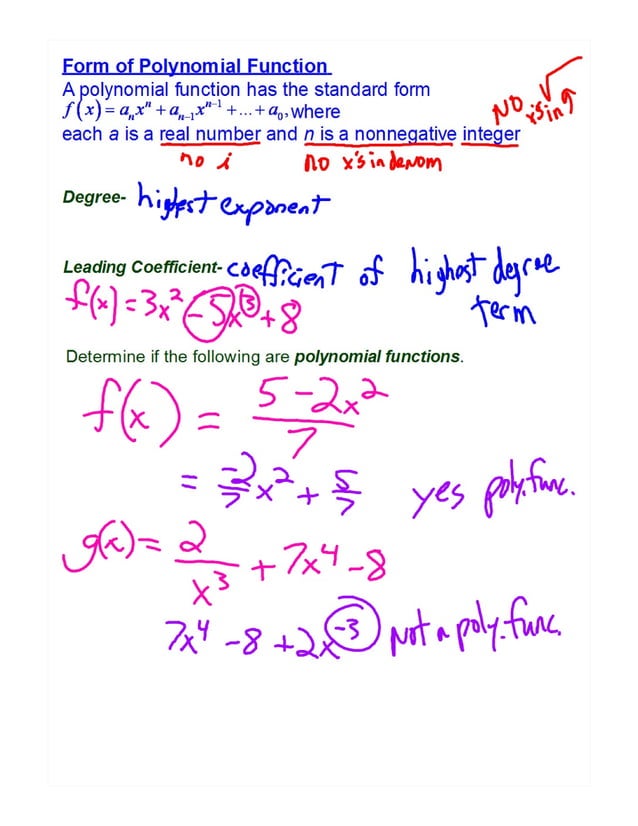 Form of Polynomial Function
A polynomial function has the standard form
f(x) = aₙxⁿ + aₙ₋₁xⁿ⁻¹ + ... + a₀, where
NO x's in √
each a is a real number and n is a nonnegative integer
no i no x's in denom
Degree- highest exponent
Leading Coefficient- coefficient of highest degree term
f(x) = 3x² - 5x³ + 8
Determine if the following are polynomial functions.
f(x) = (5 - 2x²)/7
= -2/7 x² + 5/7 yes poly. func.
g(x) = 2/x³ + 7x⁴ - 8
7x⁴ - 8 + 2x⁻³ Not a poly. func.